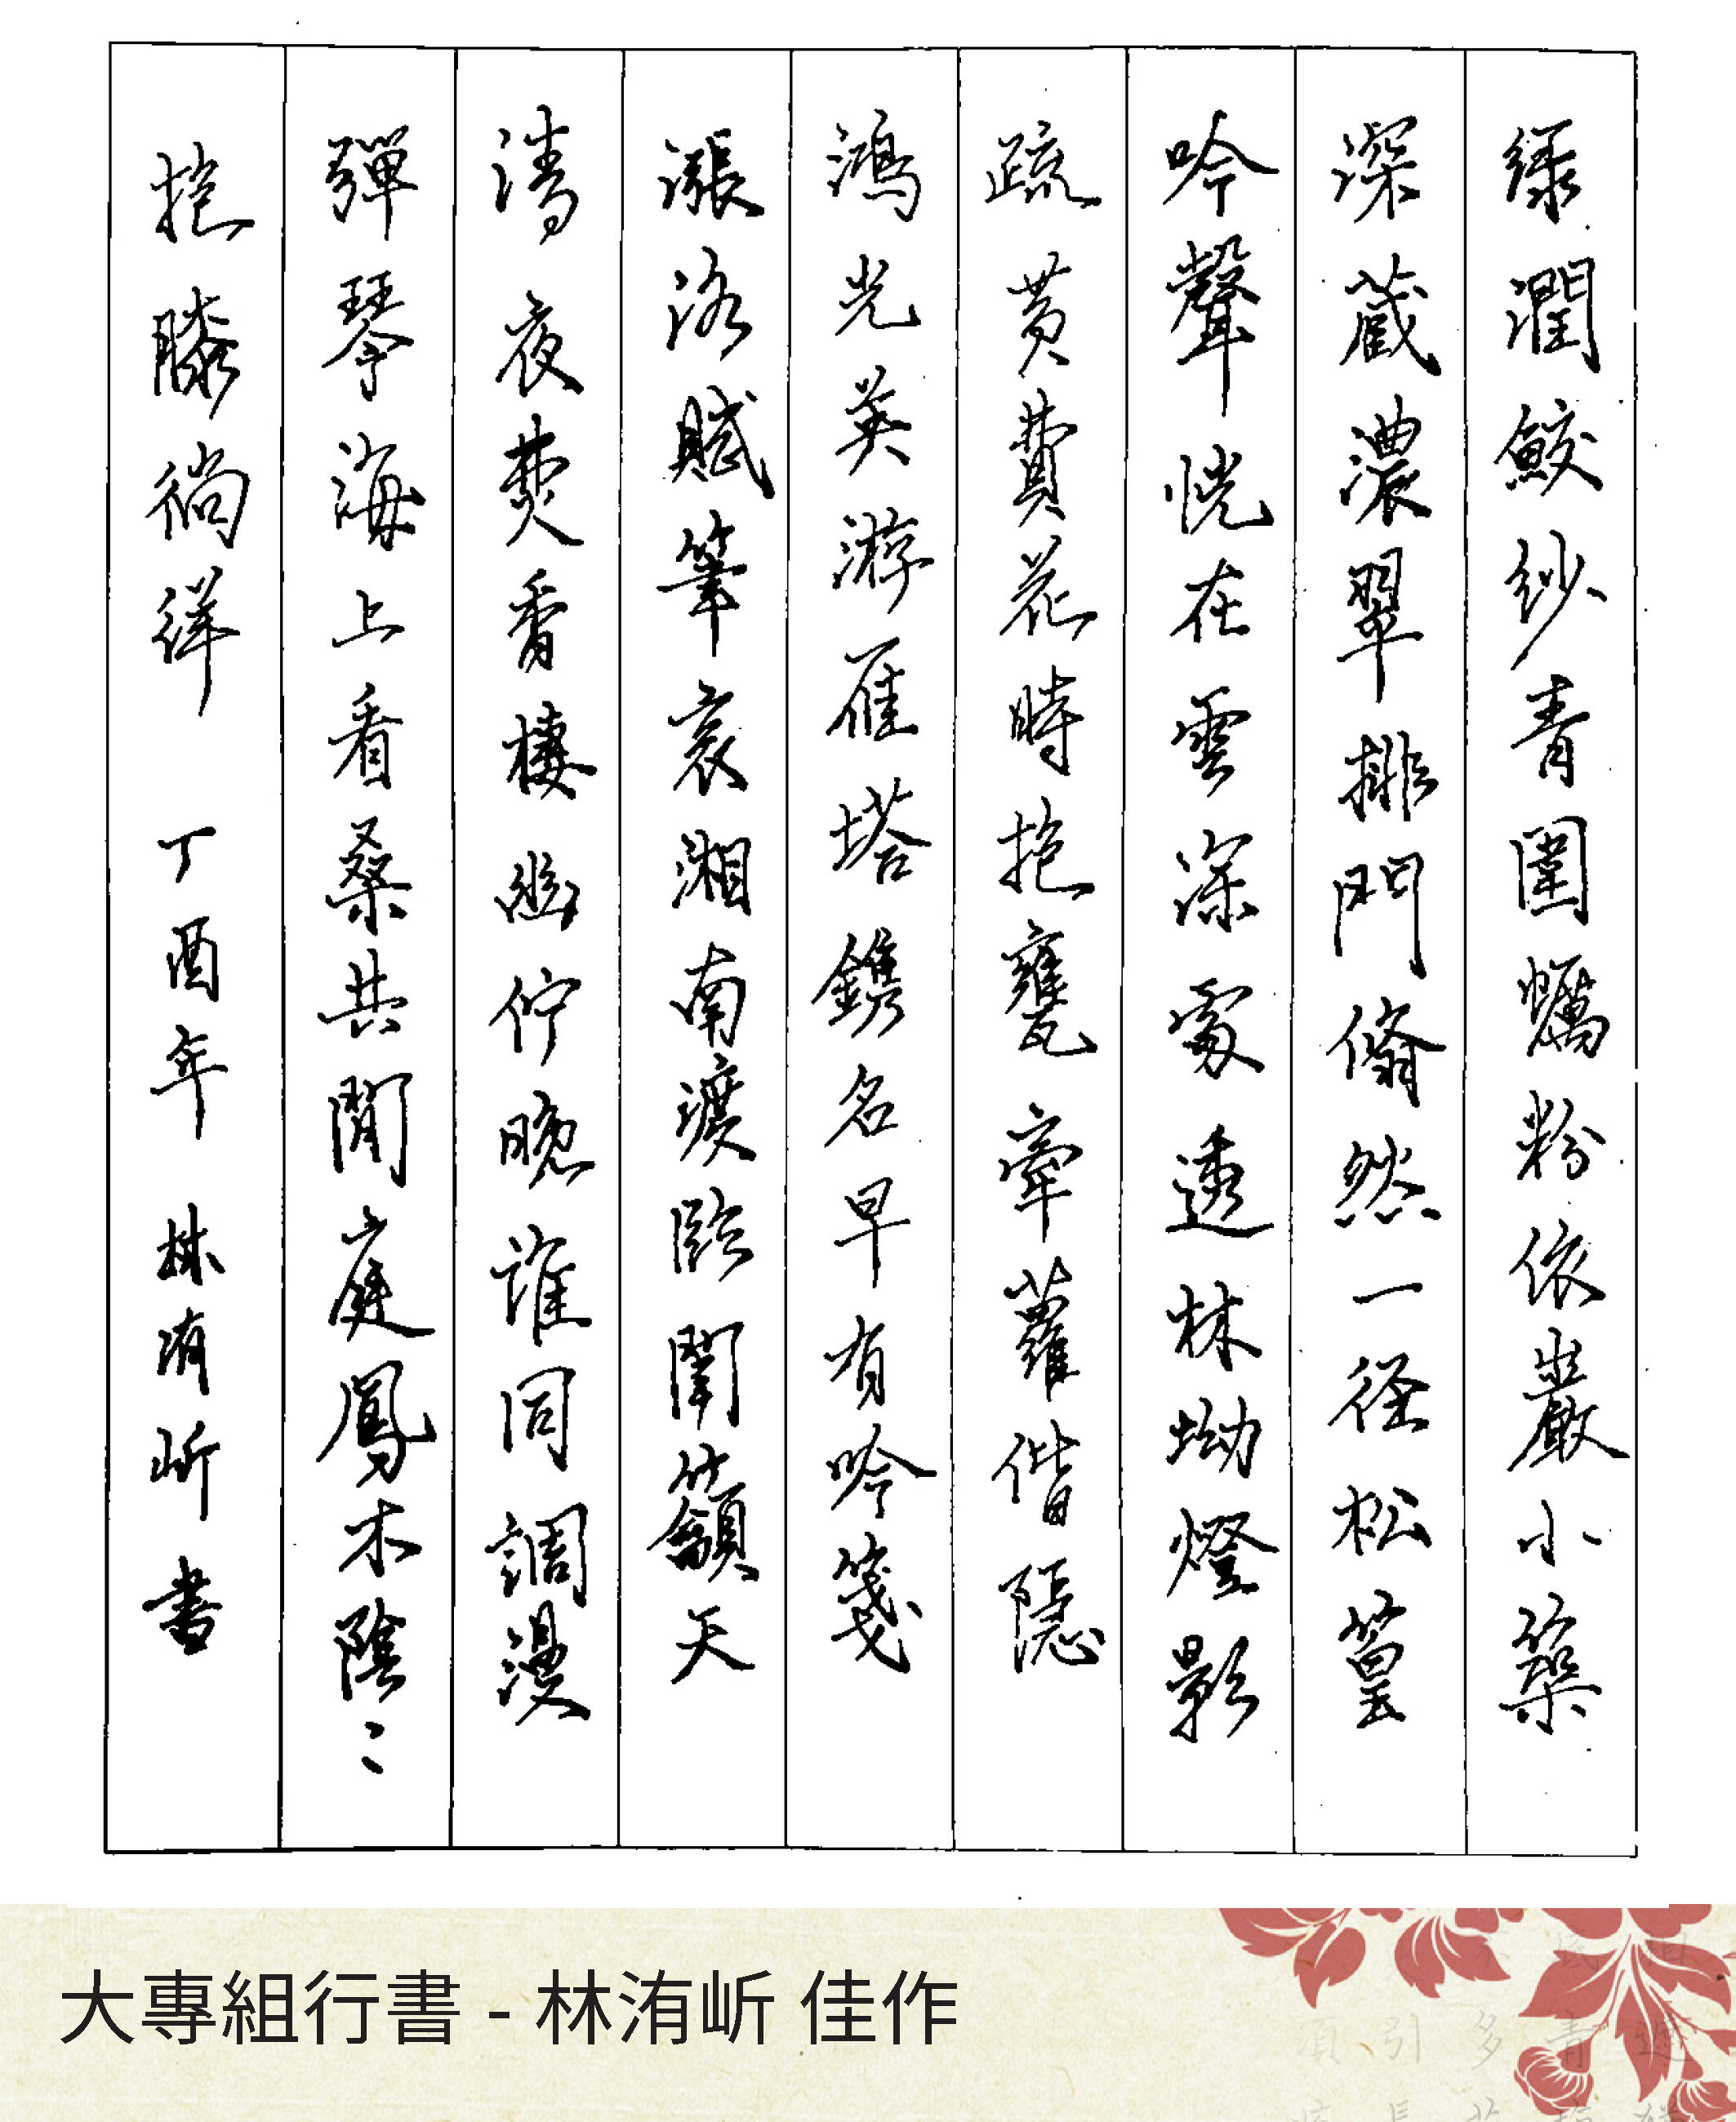 綠潤鮫紗青圍蠣粉依巖小築
深藏濃翠排門翛然一徑松篁
吟聲恍在雲深處透林坳燈影
疏黃費花時抱甕牽蘿偕隱
鴻光英游雁塔鐫名早有吟箋
漲洛賦筆哀湘南渡臨闈籲天
清夜焚香棲幽佇晚誰同調漫
彈琴海上看桑共閒庭鳳木陰〻
抱膝徜徉 丁酉年 林洧岓書
大專組行書 - 林洧岓 佳作